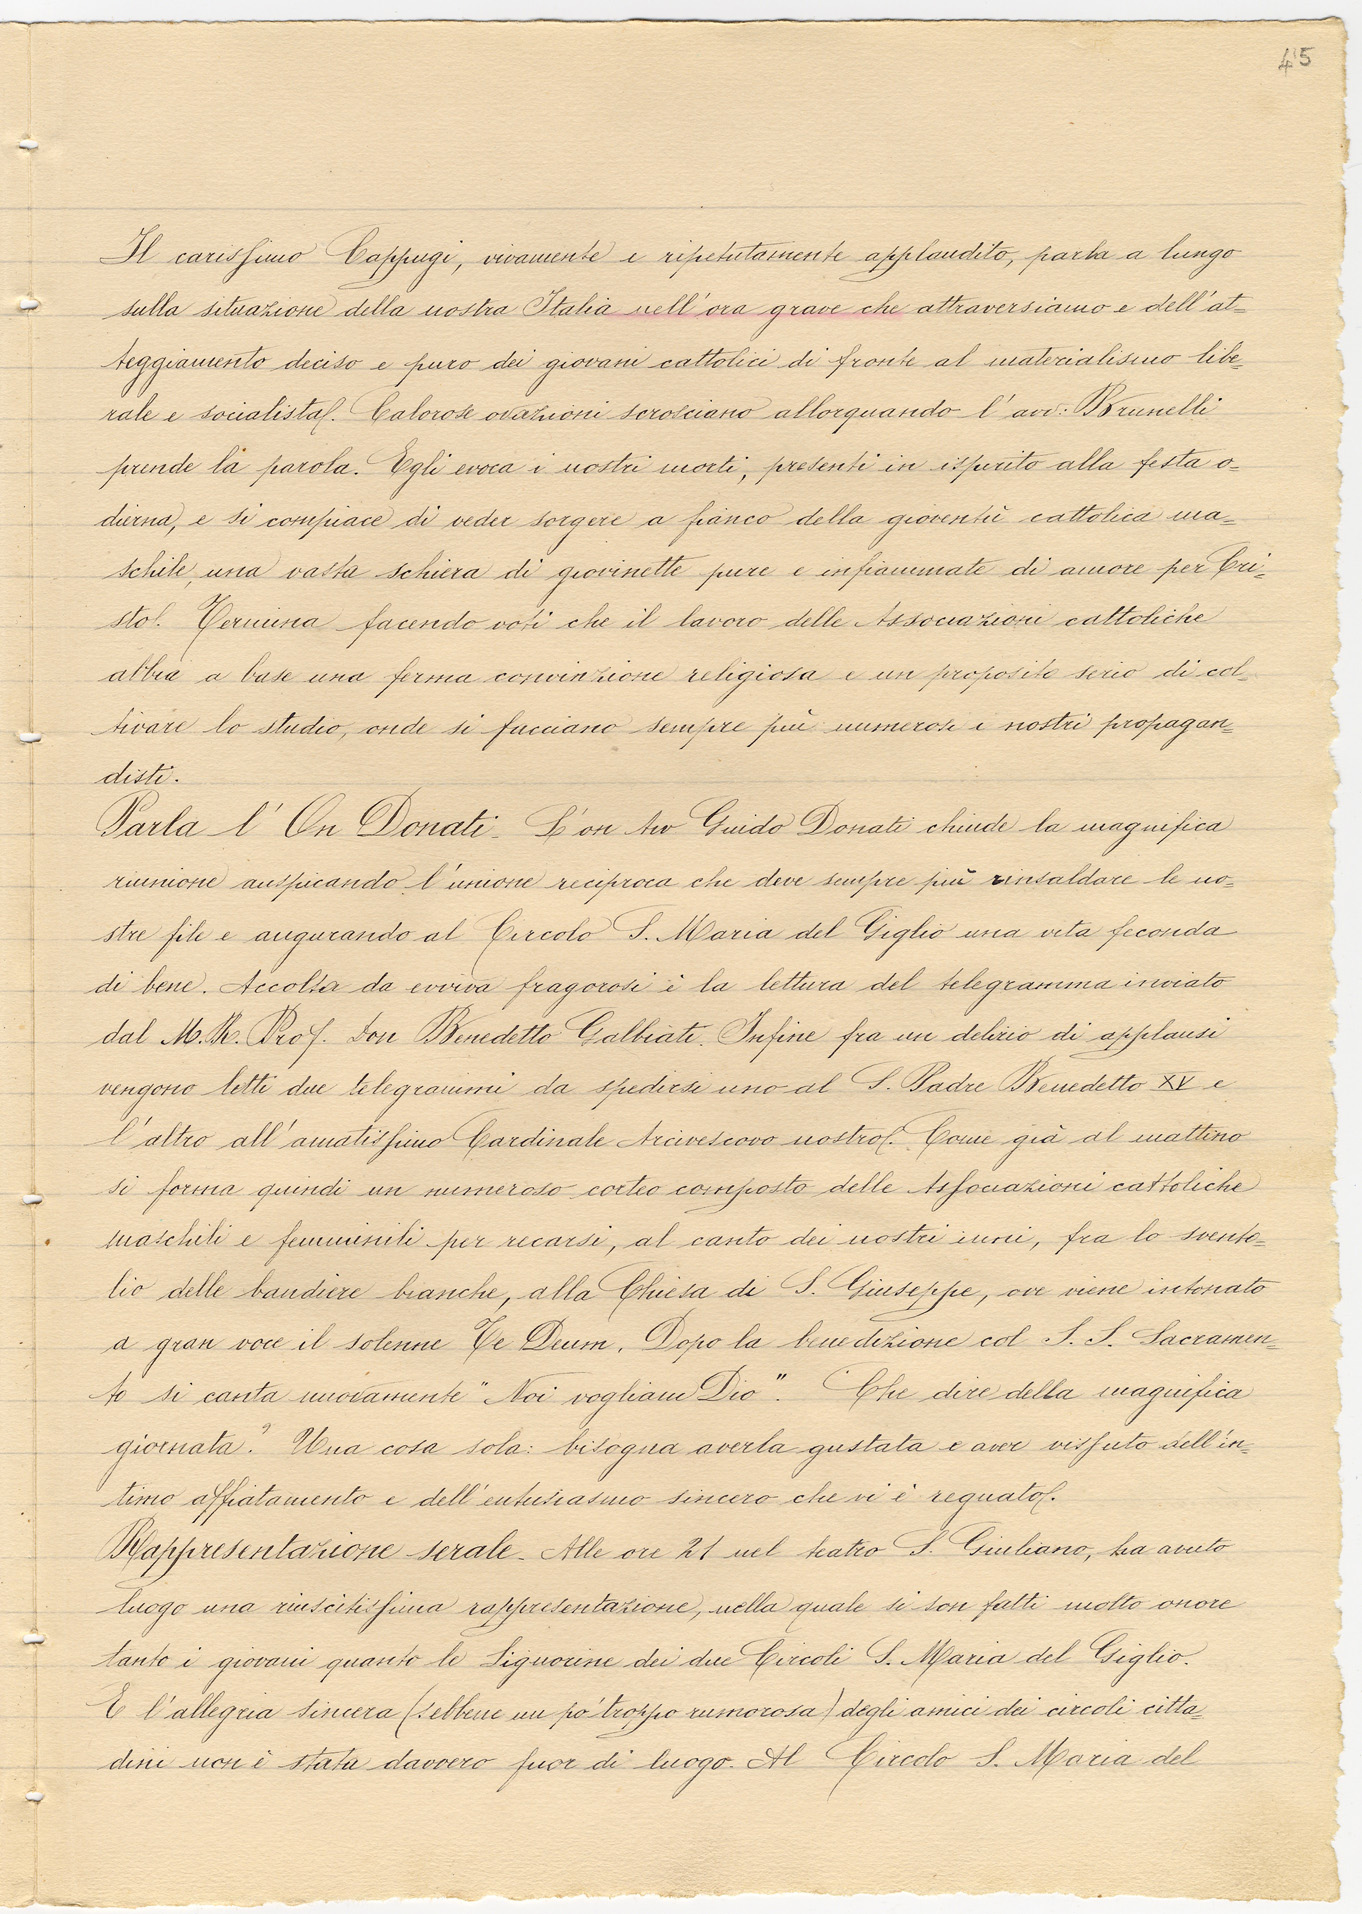 45
Il carissimo Cappugi, vivamente e ripetutamente applaudito, parla a lungo
sulla situazione della nostra Italia nell'ora grave che attraversiamo e dell'at=
teggiamento deciso e puro dei giovani cattolici di fronte al materialismo libe=
rale e socialista. Calorose ovazioni scrosciano allorquando l'avv: Brunelli
prende la parola. Egli evoca i nostri morti, presenti in ispirito alla festa o=
dierna, e si compiace di veder sorgere a fianco della gioventù cattolica ma=
schile, una vasta schiera di giovinette pure e infiammate di amore per Cri=
sto. Termina facendo voti che il lavoro delle Associazioni cattoliche
abbia a base una ferma convinzione religiosa e un proposito serio di col=
tivare lo studio, onde si facciano sempre più numerosi i nostri propagan=
disti.
Parla l'On Donati. L'on Avv Guido Donati chiude la magnifica
riunione auspicando l'unione reciproca che deve sempre più rinsaldare le no=
stre file e augurando al Circolo S. Maria del Giglio una vita feconda
di bene. Accolta da evviva fragorosi è la lettura del telegramma inviato
dal M. R. Prof. Don Benedetto Galbiati. Infine fra un delirio di applausi
vengono letti due telegrammi da spedirsi uno al S. Padre Benedetto XV e
l'altro all'amatissimo Cardinale Arcivescovo nostro. Come già al mattino
si forma quindi un numeroso corteo composto delle Associazioni cattoliche
maschili e femminili per recarsi, al canto dei nostri inni, fra lo svento=
lio delle bandiere bianche, alla Chiesa di S. Giuseppe, ove viene intonato
a gran voce il solenne Te Deum. Dopo la benedizione col S. S. Sacramen=
to si canta nuovamente "Noi vogliam Dio". Che dire della magnifica
giornata? Una cosa sola: bisogna averla gustata e aver vissuto dell'in=
timo affiatamento e dell'entusiasmo sincero che vi è regnato.
Rappresentazione serale. Alle ore 21 nel teatro S. Giuliano, ha avuto
luogo una riuscitissima rappresentazione, nella quale si son fatti molto onore
tanto i giovani quanto le Signorine dei due Circoli S. Maria del Giglio.
E l'allegria sincera (sebbene un po' troppo rumorosa) degli amici dei circoli citta=
dini non è stata davvero fuor di luogo. Al Circolo S. Maria del